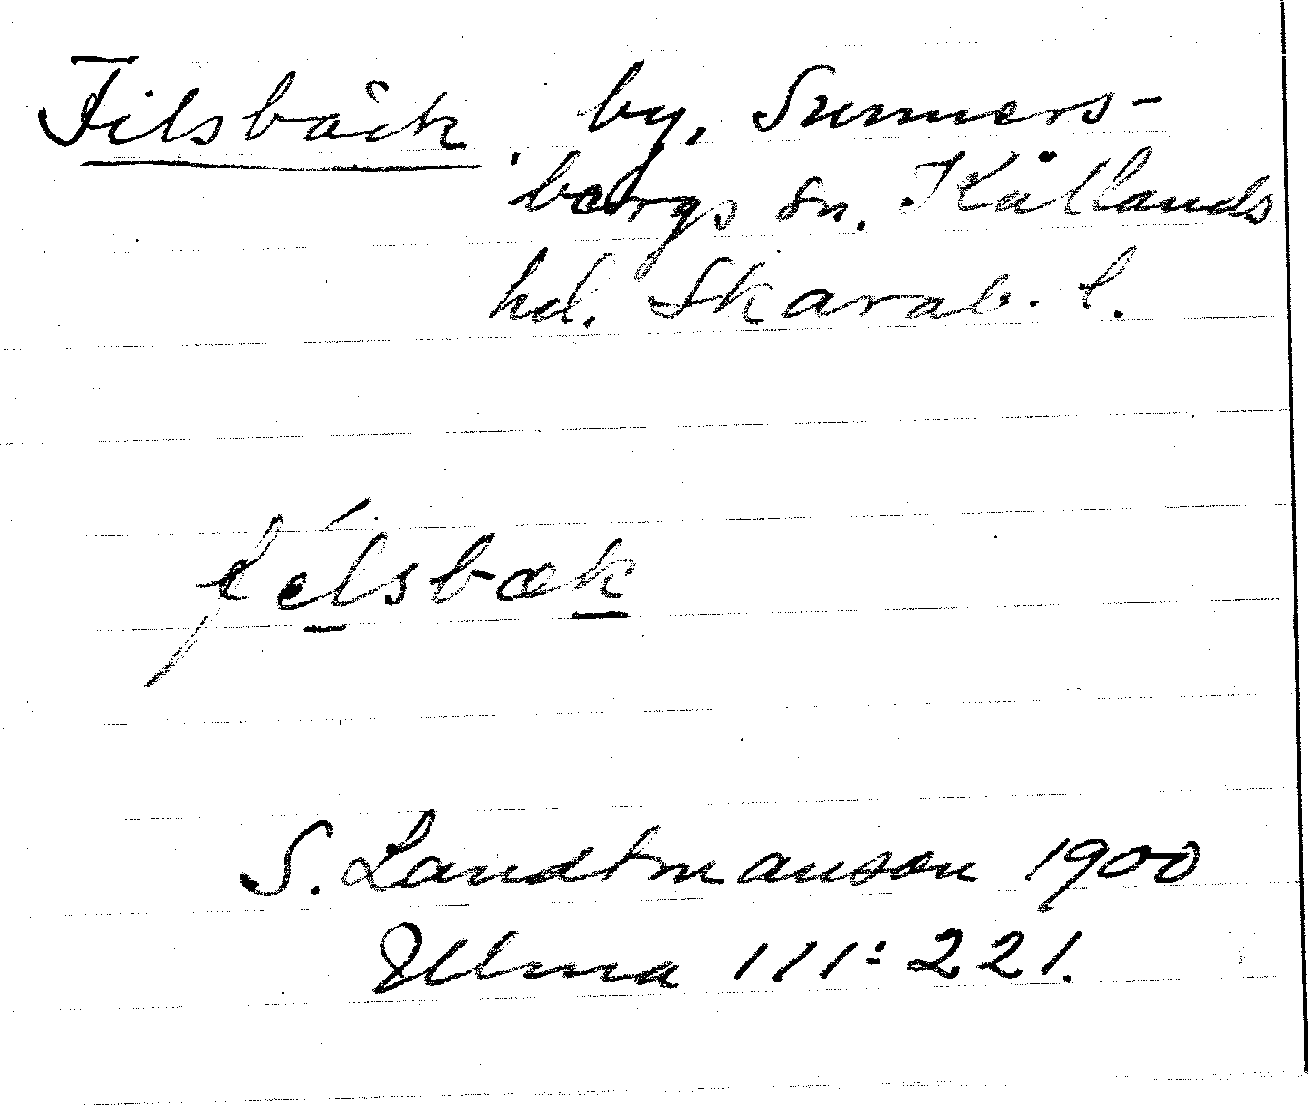 Filsbäck by, Sunners-
bergs sn. Kållands
hd. Skarab. l.
félsbæk
S. Landtmanson 1900
Ulma 111:221.